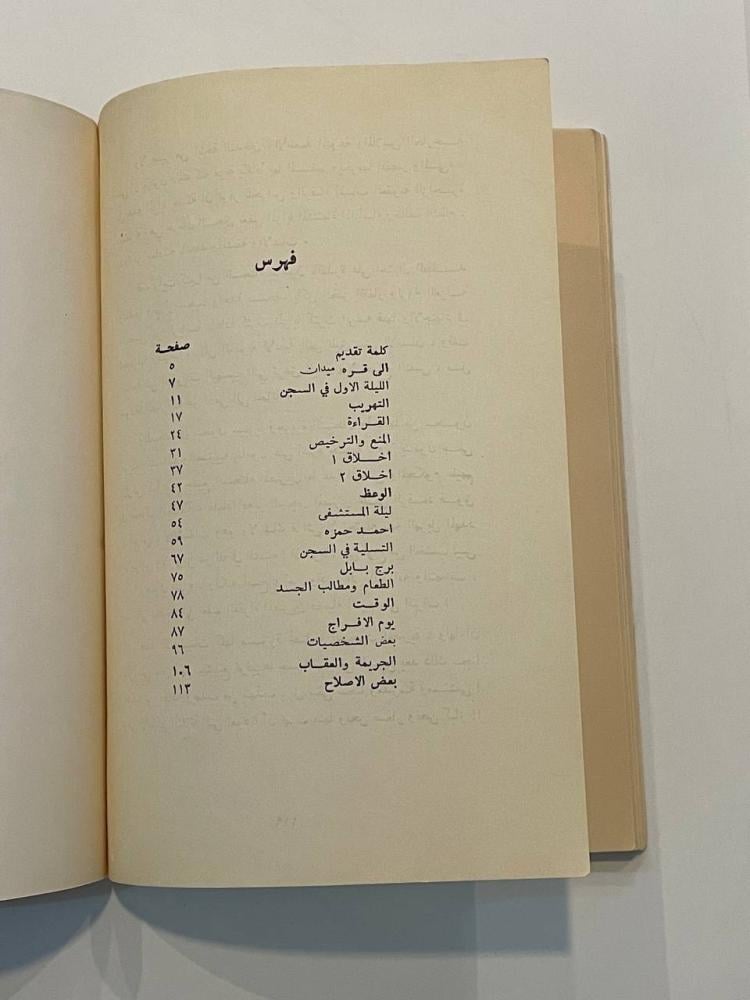 فهرس
صفحة
كلمة تقديم ٥
الى قره ميدان ٧
الليلة الاول في السجن ١١
التهريب ١٧
القراءة ٢٤
المنع والترخيص ٣١
أخلاق ١ ٣٧
أخلاق ٢ ٤٢
الوعظ ٤٧
ليلة المستشفى ٥٤
احمد حمزه ٥٩
التسلية في السجن ٦٧
برج بابل ٧٥
الطعام ومطالب الجسد ٧٨
الوقت ٨٤
يوم الافراج ٨٧
بعض الشخصيات ٩٦
الجريمة والعقاب ١٠٦
بعض الاصلاح ١١٣